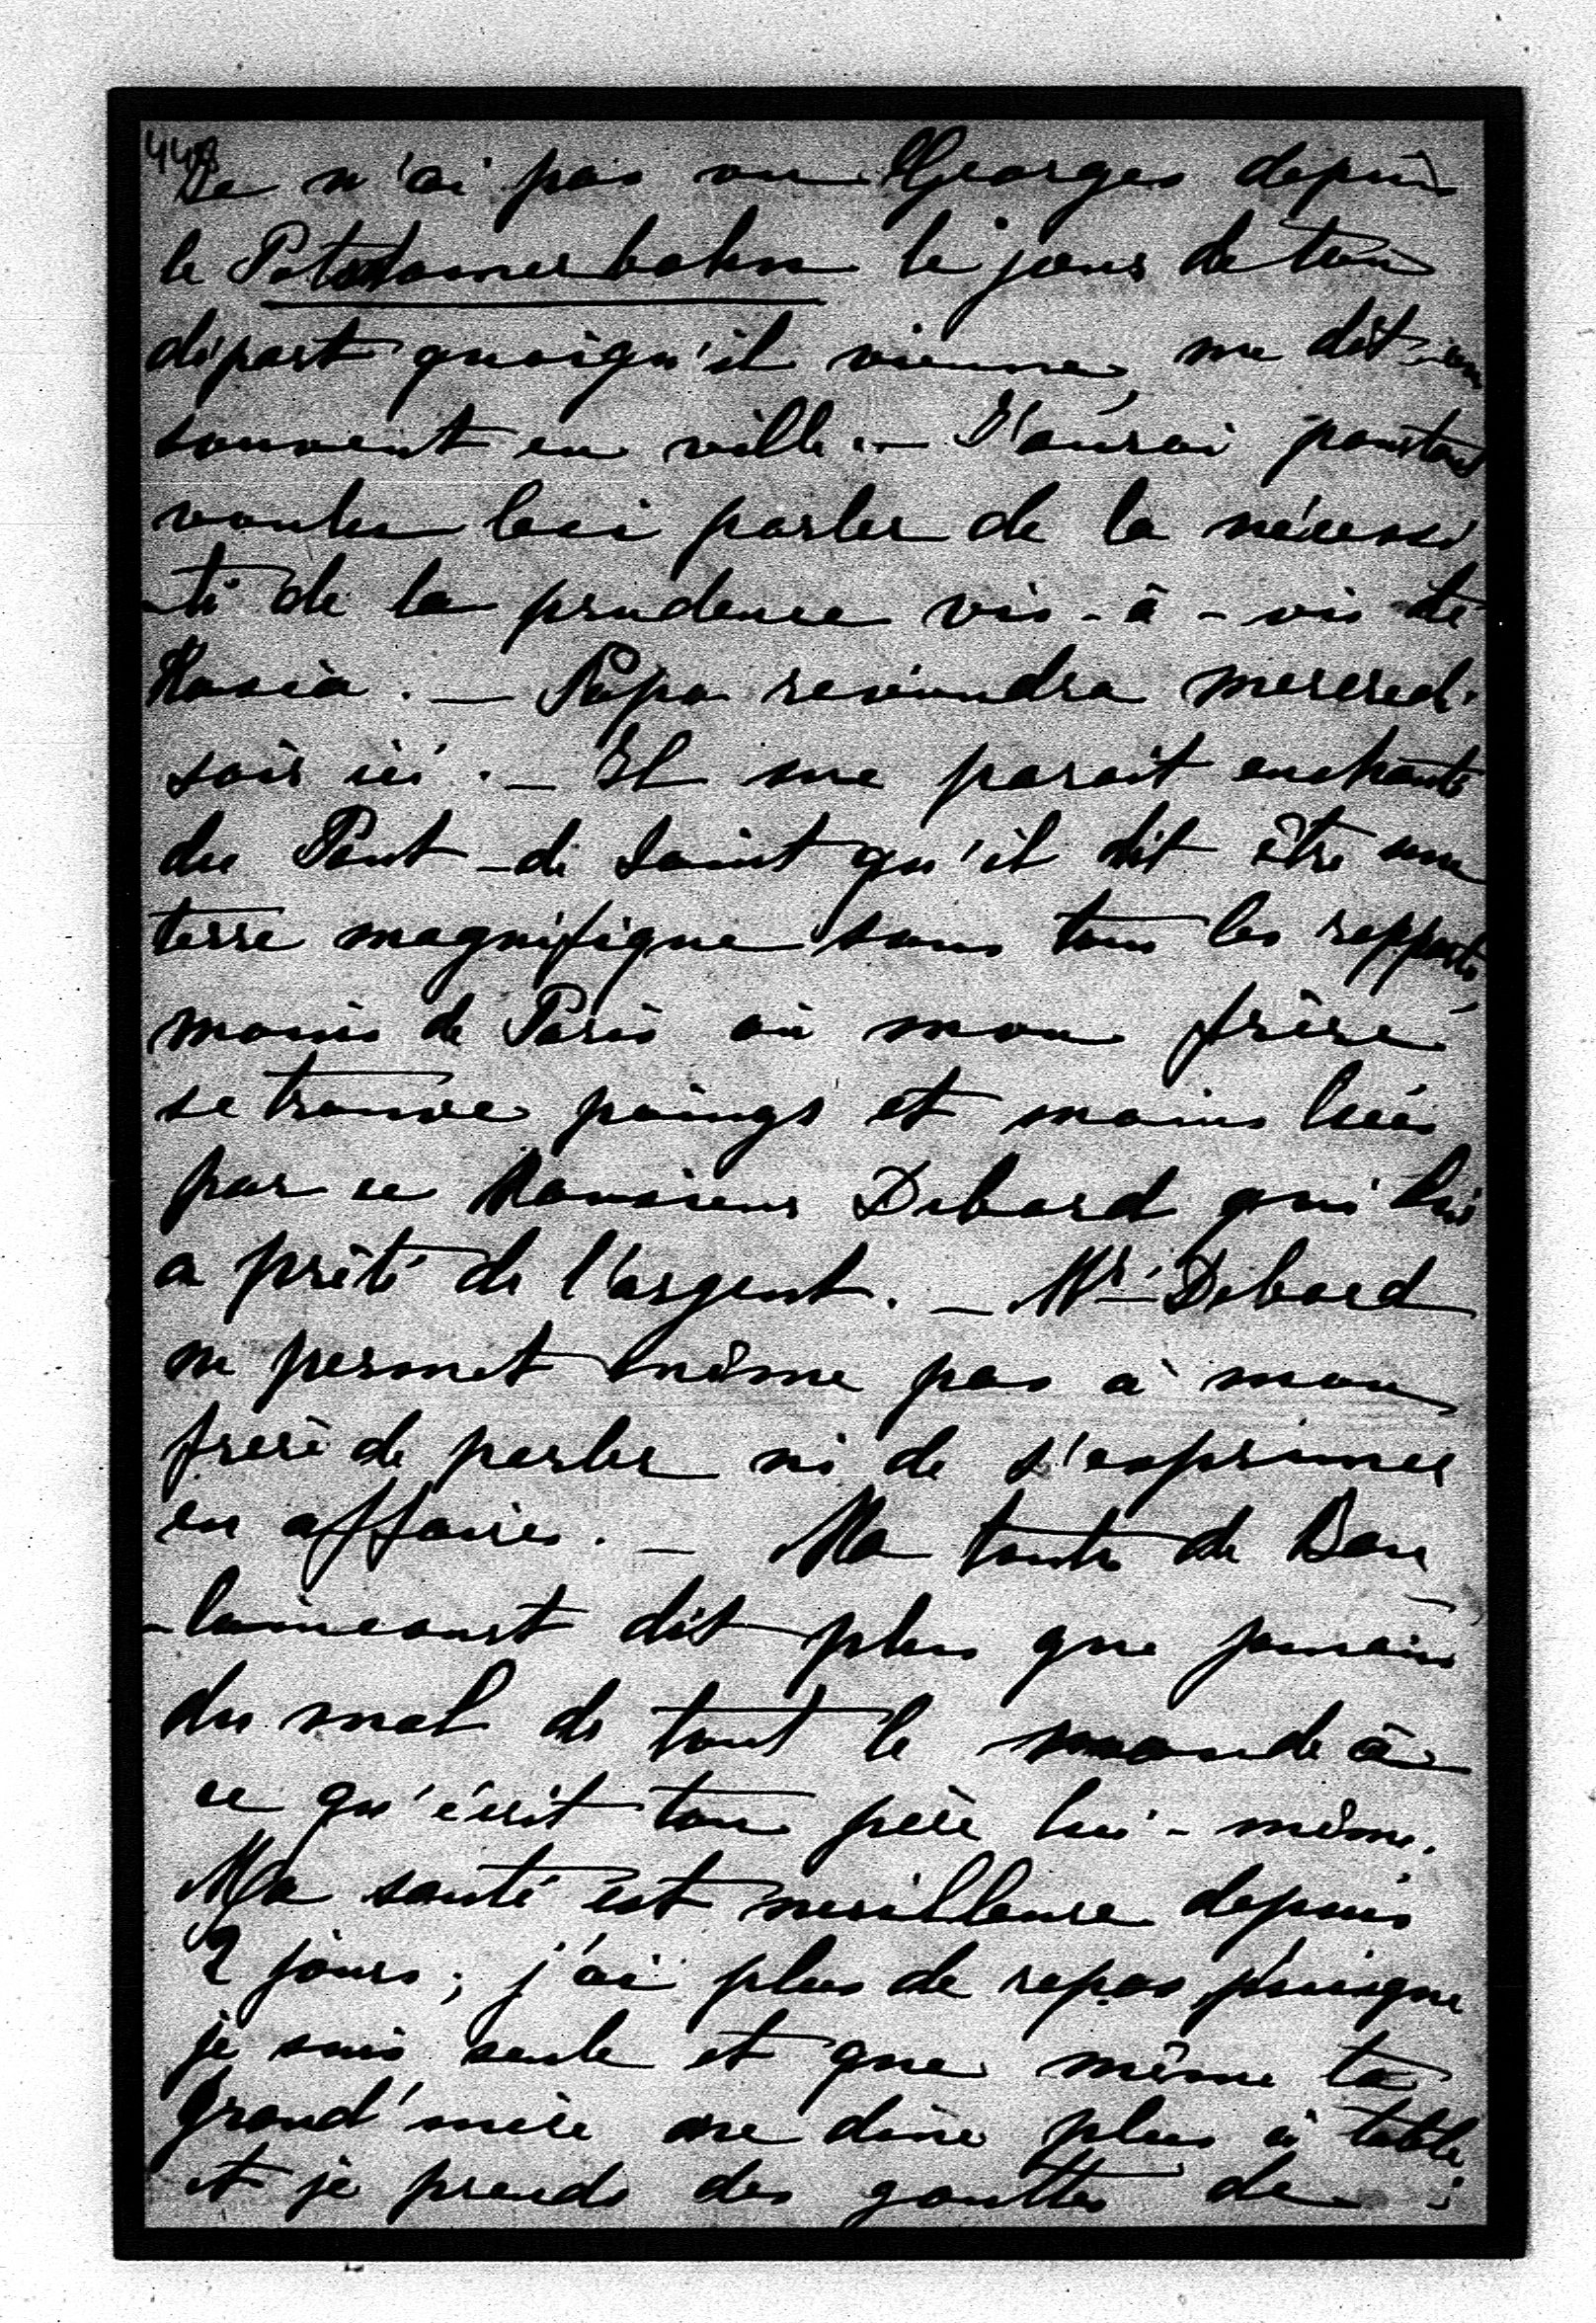 448
Je n'ai pas vu Georges depuis
le Potsdamerbahn le jour de ton
départ quoiqu'il vienne, me dit-on
souvent en ville. — J'aurai pourtant
voulu lui parler de la nécessi
-té de la prudence vis-à-vis de
Kasia. — Papa reviendra mercredi
soir ici. — Il me parait enchanté
du Pont-de Saint qu'il dit être une
terre magnifique sous tous les rapports
moins de Paris où mon frère
se trouve poings et mains liés
par ce Monsieur Debord qui lui
a prêté de l'argent. — Mr. Debord
ne permet même pas à mon
frère de parler ni de s'exprimer
en affaires. — Ma tante de Beau
-laincourt dit plus que jamais
du mal de tout le monde à
ce qu'écrit ton père lui-même.
Ma santé est meilleure depuis
2 jours; j'ai plus de repos puisque
je suis seule et que même ta
grand'mère ne dîne plus à table
et je prends des gouttes de